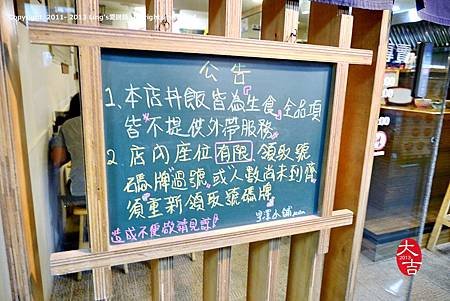 Copyright 2011- 2013 Ling's愛旅誌. All rights
公告
1、本店丼飯皆為生食,全品項
皆不提供外帶服務。
2、店內座位有限,領取號
碼牌過號,或人數尚未到齊
須重新領取號碼牌
造成不便敬請見諒!
大
2013
吉